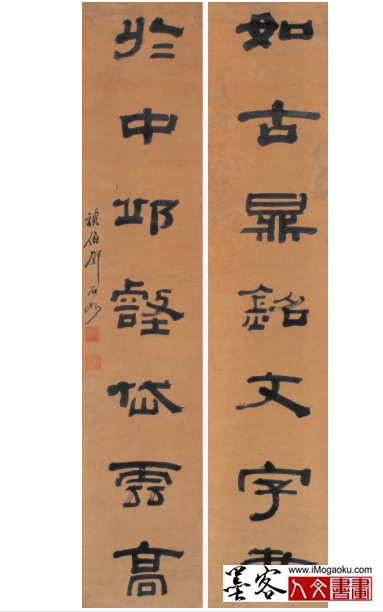 如古鼎銘文字
於中邱壑岱雲高
頑伯鄧石如
墨客
www.iMogaoku.com
人文書畫